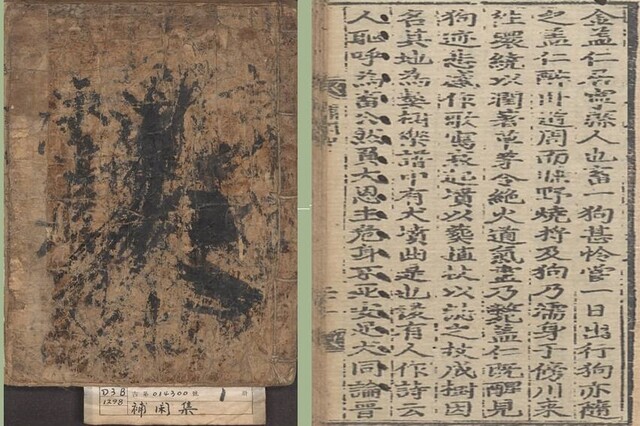 D3B
1298
014300
1
補閑集
金盖仁居寧縣人也畜一狗甚怜嘗一日出行狗亦隨
之盖仁醉卧道周而睡野燒將及狗乃濡身于傍川來
往環繞以潤著草茅令絶火道氣盡乃斃盖仁旣醒見
狗迹悲感作歌寫哀起墳以葬植杖以誌之杖成樹因
名其地為獒樹樂譜中有犬墳曲是也後有人作詩云
人恥呼為畜公然負大恩主危身不死安足犬同論晉